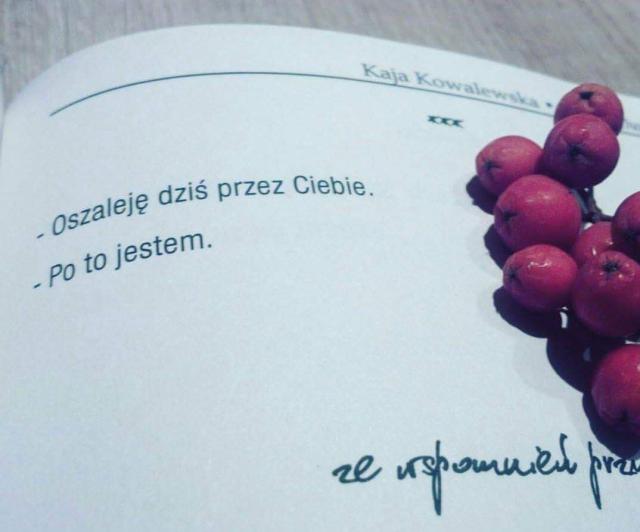 Kaja Kowalewska •
xxx
- Oszaleję dziś przez Ciebie.
- Po to jestem.
ze wspomnień